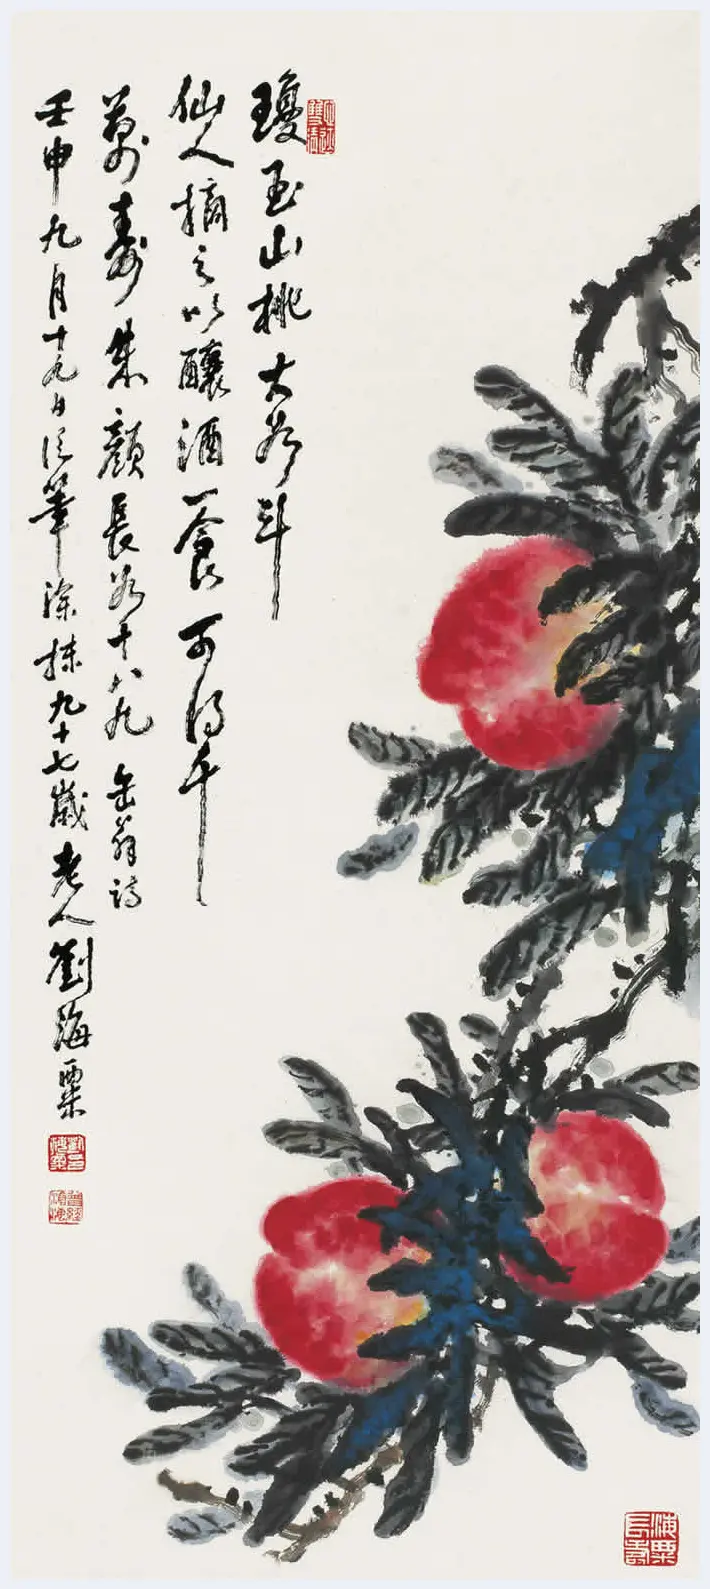 瓊玉山桃大如斗
仙人摘之以釀酒一食可得千
萬壽朱顏長如十八九 缶翁詩
壬申九月十九日信筆塗抹九十七歲老人劉海粟
海粟